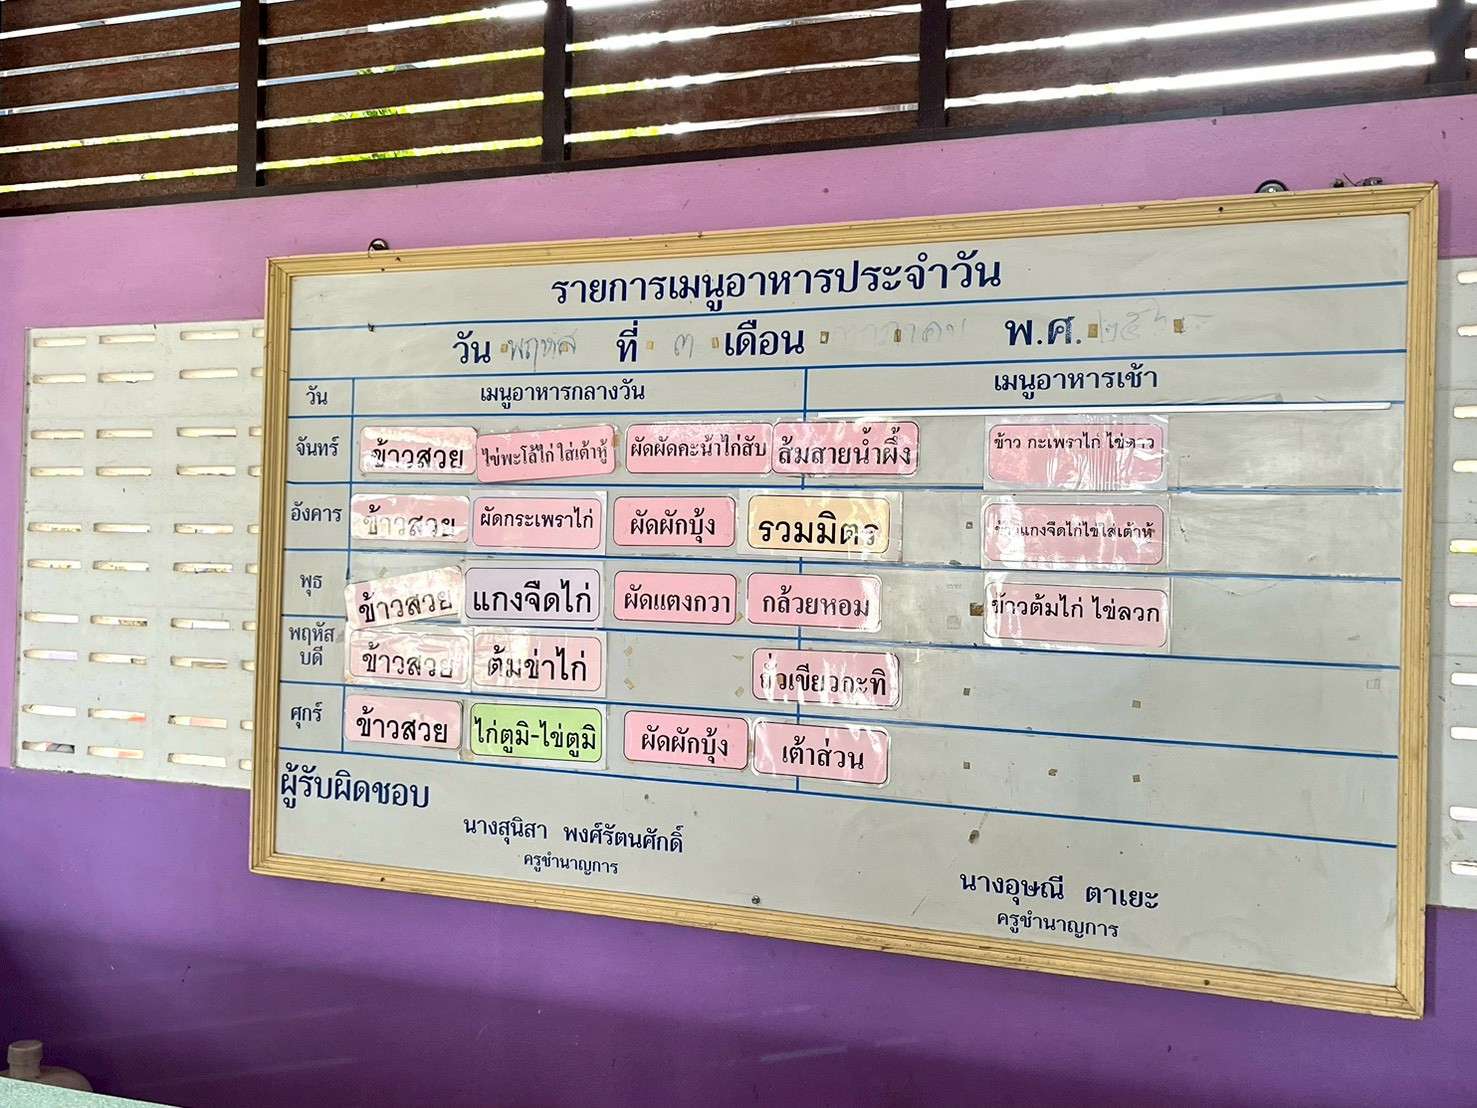 รายการเมนูอาหารประจำวัน
วัน พฤหัส ที่ ๓ เดือน พ.ศ.
วัน เมนูอาหารกลางวัน เมนูอาหารเช้า
จันทร์ ข้าวสวย ไข่พะโล้ไก่ ใส่เต้าหู้ ผัดผัดคะน้าไก่สับ ส้มสายน้ำผึ้ง ข้าว กะเพราไก่ ไข่ดาว
อังคาร ข้าวสวย ผัดกระเพราไก่ ผัดผักบุ้ง รวมมิตร ข้าวแกงจืดไก่ไข่ใส่เต้าหู้
พุธ ข้าวสวย แกงจืดไก่ ผัดแตงกวา กล้วยหอม ข้าวต้มไก่ ไข่ลวก
พฤหัสบดี ข้าวสวย ต้มข่าไก่ ถั่วเขียวกะทิ
ศุกร์ ข้าวสวย ไก่ตูมิ-ไข่ตูมิ ผัดผักบุ้ง เต้าส่วน
ผู้รับผิดชอบ
นางสุนิสา พงศ์รัตนศักดิ์
ครูชำนาญการ
นางอุษณี ตาเยะ
ครูชำนาญการ